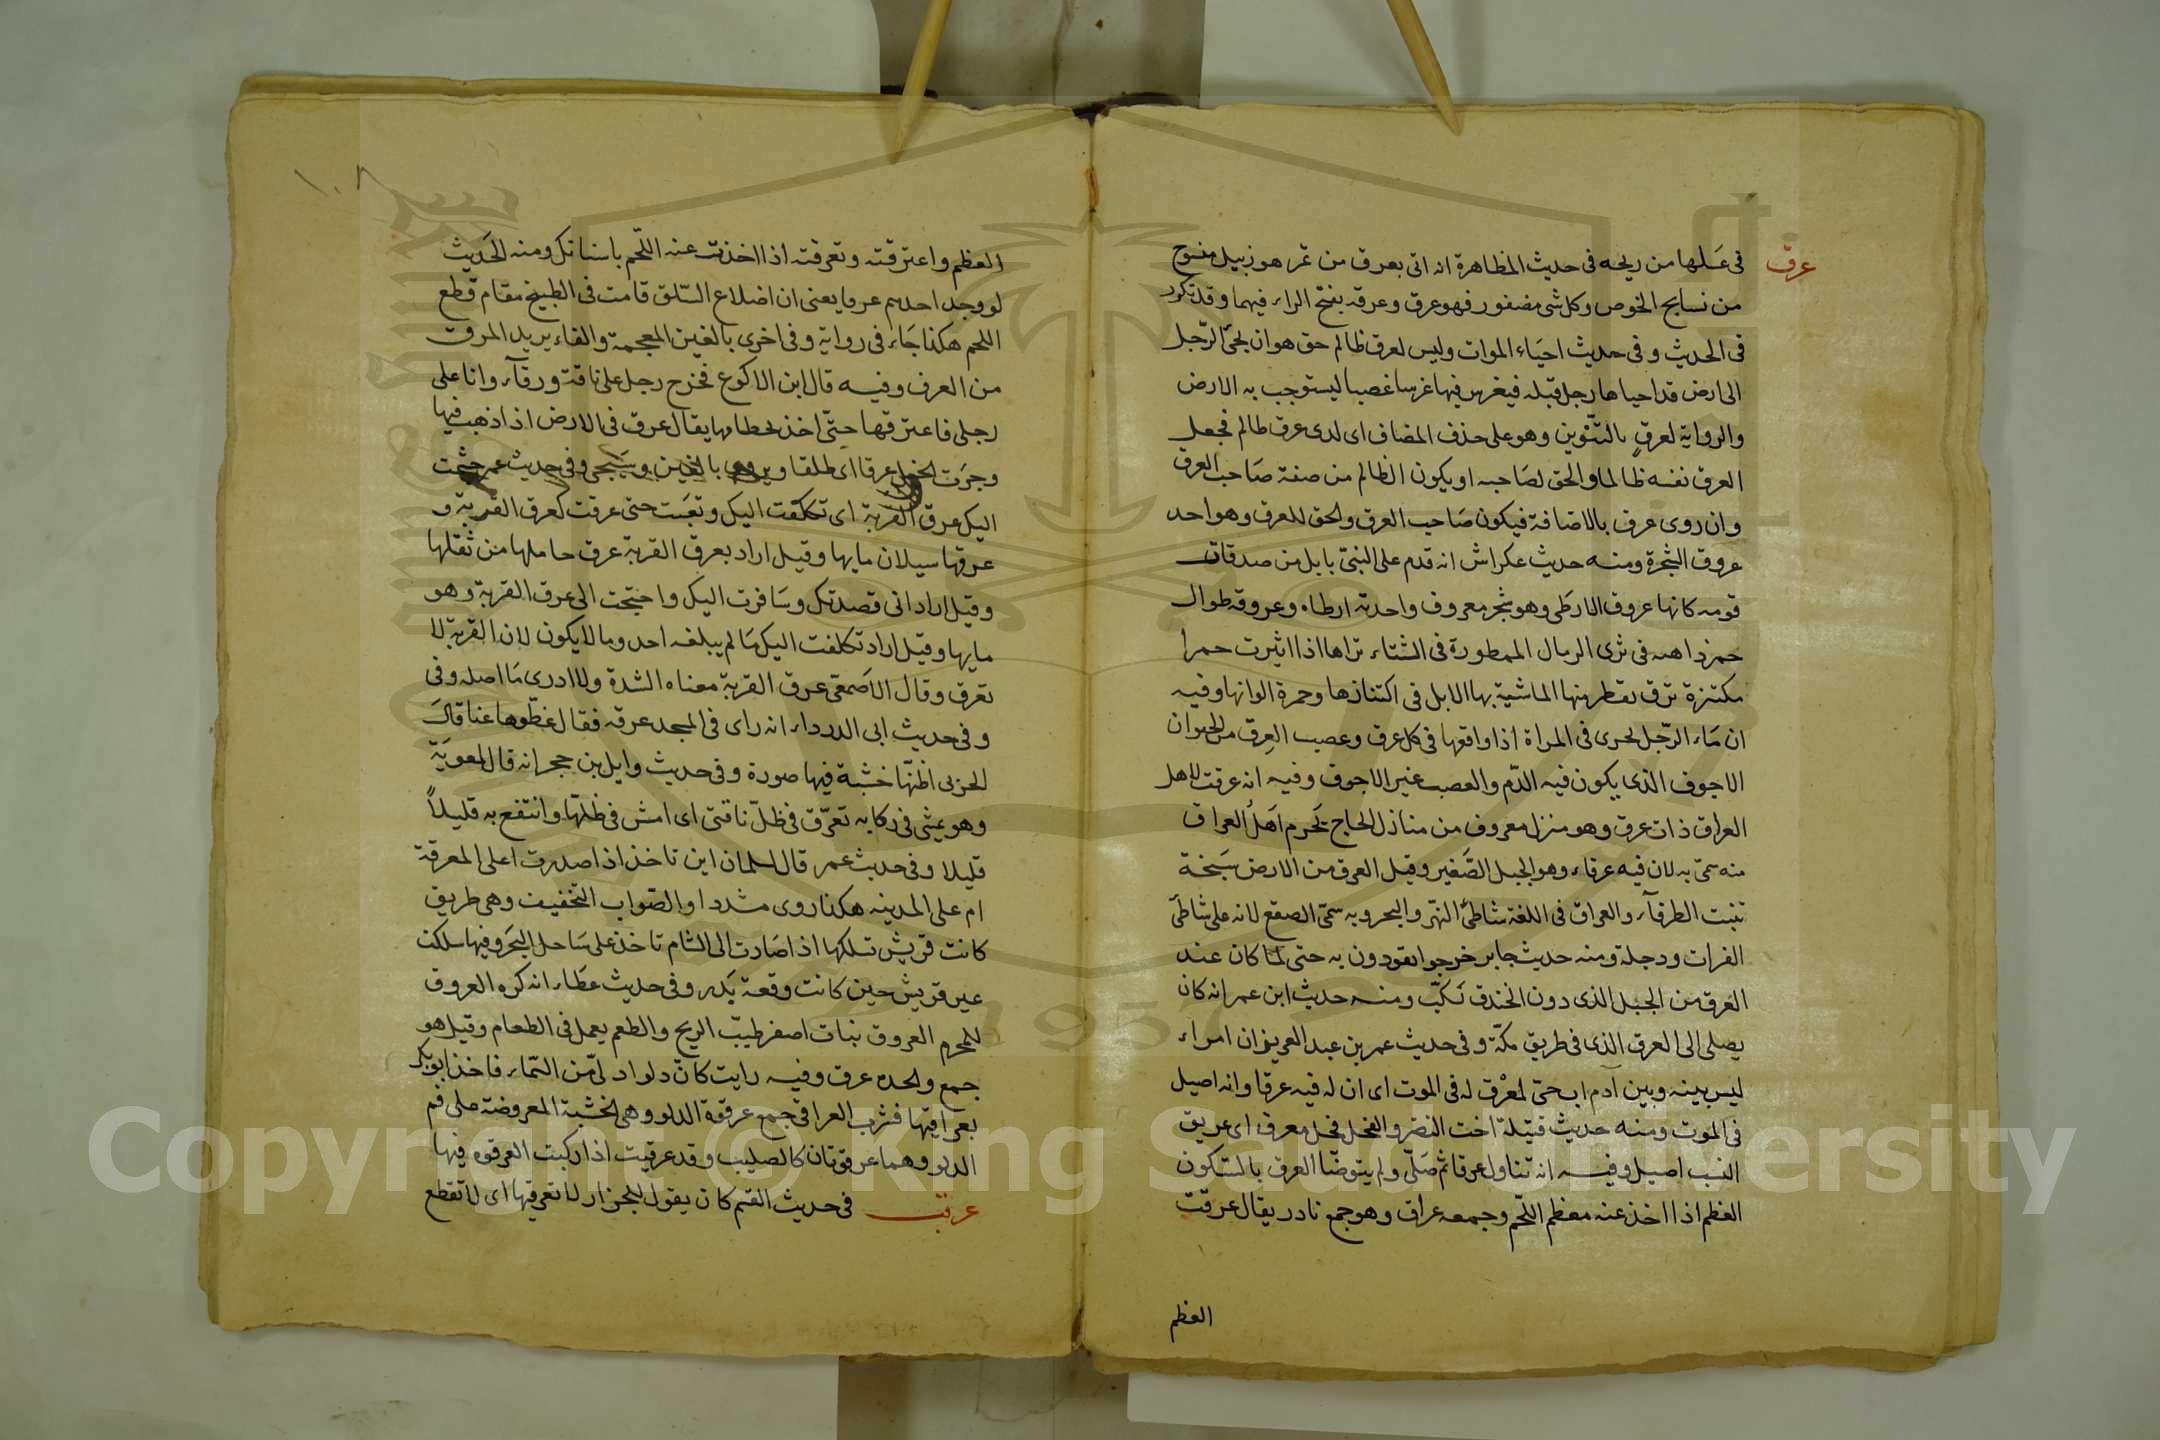 عرق
فى عسلها من ريحه فى حديث المظاهرة انه اتى بعرق من تمر هو زبيل منسوج
من نسايج الخوص وكل شى مضفور فهو عرق وعرقه بفتح الراء فيهما وقد تكرر
فى الحديث وفى حديث احياء الموات وليس لعرق ظالم حق هو ان يجئ الرّجل
الى ارض قد احياها رجل قبله فيغرس فيها غرسا غصبا ليستوجب به الارض
والرواية لعرقٍ بالتّنوين وهو على حذف المضاف اى لدى عرق ظالم فجعل
العرق نفسه ظالما والحق لصاحبه او يكون الظالم من صفة صاحب العرق
وان روى عرق بالاضافة فيكون صاحب العرق والحق للعرق وهو احد
عروق الشجرة ومنه حديث عكراش انه قدم على النبىّ بابل من صدقات
قومه كانها عروق الارطى وهو شجر معروف واحدته ارطاه وعروقه طوال
حمر ذاهبه فى ثرى الرمال الممطورة فى الشتاء تراها اذا اثيرت حمرا
مكتنزة ترق يقطر منها الماشية بها الابل فى اكتنازها وحمرة الوانها وفيه
ان ماء الرّجل يجرى فى المراة اذا واقعها فى كل عرق وعصب العِرق من الحيوان
الاجوف الذى يكون فيه الدّم والعصب غير الاجوف وفيه انه عرقت لاهل
العراق ذات عرق وهو منزل معروف من منازل الحاج يحرم اهل العراق
منه سمّى به لان فيه عرقا وهو الجبل الصّغير وقيل العرق من الارض سبخة
تنبت الطرفآء والعراق فى اللغة شاطئ النهر والبحر وبه سمّى الصقع لانه على شاطئ
الفرات ودجلة ومنه حديث جابر خرجوا يقودون به حتى لما كان عند
العرق من الجبل الذى دون الخندق نكّب ومنه حديث ابن عمر انه كان
يصلى الى العرق الذى فى طريق مكّة وفى حديث عمر بن عبد العزيز ان امراء
ليس بينه وبين آدم اب حىّ لمعْرق له فى الموت اى ان له فيه عرقا وانه اصيل
فى الموت ومنه حديث قتيلة اخت النضر والفحل فحل معرق اى عريق
النسب اصيل وفيه انه تناول عرقا ثم صلّى ولم يتوضّا العرق بالسّكون
العظم اذا اخذ عنه معظم اللّحم وجمعه عراق وهو جمع نادر يقال عرقت
العظم
١٠٨
العظم واعترقته وتعرقته اذا اخذت عنه اللّحم باسنانك ومنه الحديث
لو وجد احدهم عرقا يعنى ان اضلاع السّلق قامت فى الطبيخ مقام قطع
اللحم هكذا جاء فى رواية وفى اخرى بالغين المعجمة والفاء يريد المرق
من الغرف وفيه قال ابن الاكوع فخرج رجل على ناقة ورقآء وانا على
رجلى فاعترقها حتّى اخذ بخطامها يقال عرق فى الارض اذا ذهب فيها
وجرت الخيل عرقا اى طلقا ويروى بالغين وسيجى وفى حديث عمر جشمت
اليك عرق القربة اى تكلفت اليك وتعبت حتى عرقت كعرق القربة و
عرقها سيلان مايها وقيل اراد بعرق القربة عرق حاملها من ثقلها
وقيل اراد انى قصدتك وسافرت اليك واحتجت الى عرق القربة وهو
مايها وقيل اراد تكلفت اليك ما لم يبلغه احد وما لا يكون لان القربة لا
تعرق وقال الاصمعى عرق القربة معناه الشدة ولا ادرى ما اصله وفى
وفى حديث ابى الدرداء انه راى فى المسجد عرقه فقال غطّوها عنا قال
الحربى اظنّها خشبة فيها صورة وفى حديث وايل بن حجر انه قال لمعوية
وهو يمشى فى ركابه تعرّق فى ظلّ ناقتى اى امش فى ظلّها وانتفع به قليلاً
قليلا وفى حديث عمر قال لسلمان اين تاخذ اذا صدرت اعلى المعرقة
ام على المدينه هكذا روى مشددا والصّواب التخفيف وهى طريق
كانت قريش تسلكها اذا صارت الى الشام تاخذ على ساحل البحر وفيها سلكت
عير قريش حين كانت وقعة بدر وفى حديث عطاء انه كره العروق
للمحرم العروق نبات اصفر طيّب الريح والطعم يعمل فى الطعام وقيل هو
جمع واحده عرق وفيه رايت كانّ دلوا دلّى من السّماء فاخذ ابو بكر
بعراقيها فشرب العراقى جمع عرقوة الدلو وهى الخشبة المعروضة على فم
الدلو وهما عرقوتان كالصليب وقد عرقيت اذا ركبت العرقوه فيها
عرقب فى حديث القسم كان يقول للجزار لا تعرقبها اى لا تقطع